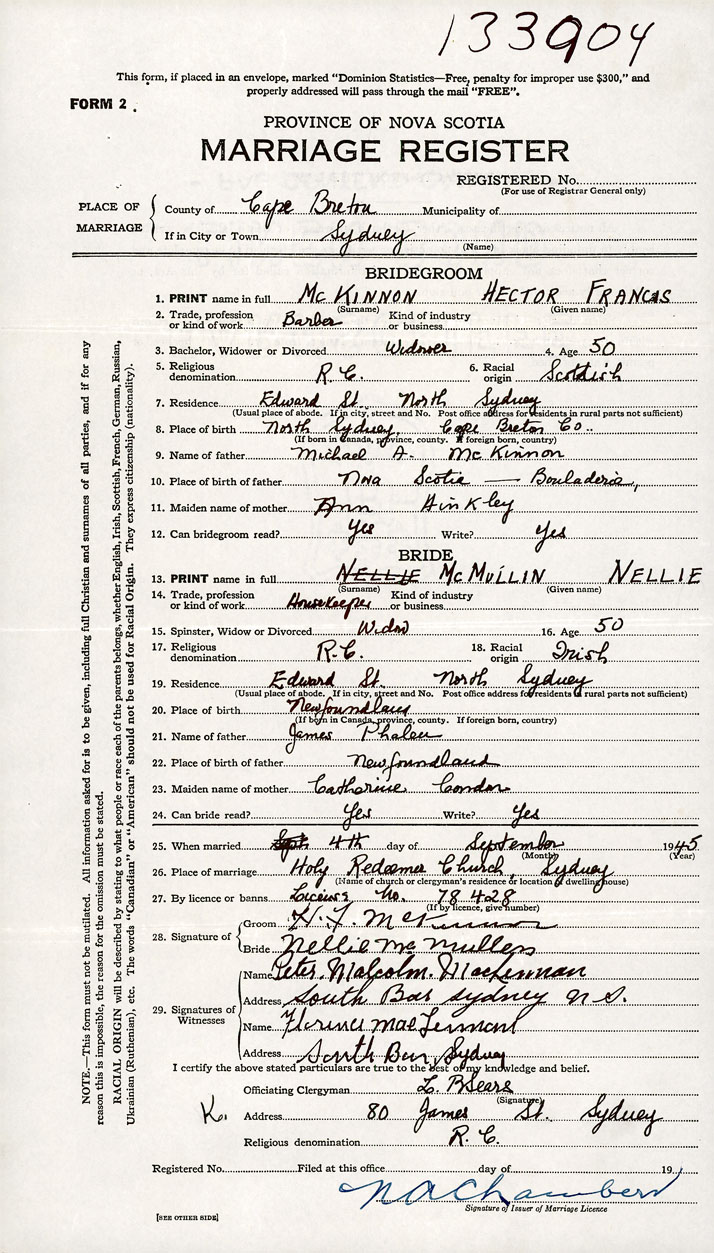 133904
This form, if placed in an envelope, marked "Dominion Statistics—Free, penalty for improper use $300," and
properly addressed will pass through the mail "FREE".
FORM 2 .
PROVINCE OF NOVA SCOTIA
MARRIAGE REGISTER
REGISTERED No.
(For use of Registrar General only)
PLACE OF MARRIAGE
County of Cape Breton Municipality of
If in City or Town Sydney
(Name)
BRIDEGROOM
1. PRINT name in full McKINNON HECTOR FRANCIS
(Surname) (Given name)
2. Trade, profession or kind of work Barber Kind of industry or business
3. Bachelor, Widower or Divorced Widower 4. Age 50
5. Religious denomination R.C. 6. Racial origin Scottish
7. Residence Edward St. North Sydney
(Usual place of abode. If in city, street and No. Post office address for residents in rural parts not sufficient)
8. Place of birth North Sydney, Cape Breton Co..
(If born in Canada, province, county. If foreign born, country)
9. Name of father Michael A. McKinnon
10. Place of birth of father Nova Scotia — Bouladerie,
11. Maiden name of mother Ann Hinkley
12. Can bridegroom read? Yes Write? Yes
BRIDE
13. PRINT name in full NELLIE McMULLIN NELLIE
(Surname) (Given name)
14. Trade, profession or kind of work Housekeeper Kind of industry or business
15. Spinster, Widow or Divorced Widow 16. Age 50
17. Religious denomination R.C. 18. Racial origin Irish
19. Residence Edward St. North Sydney
(Usual place of abode. If in city, street and No. Post office address for residents in rural parts not sufficient)
20. Place of birth Newfoundland
(If born in Canada, province, county. If foreign born, country)
21. Name of father James Phalen
22. Place of birth of father Newfoundland
23. Maiden name of mother Catharine Condon
24. Can bride read? Yes Write? Yes
25. When married Sept 4th day of September 1945
(Month) (Year)
26. Place of marriage Holy Redeemer Church, Sydney
(Name of church or clergyman's residence or location of dwelling house)
27. By licence or banns Licence No. 78428
(If by licence, give number)
28. Signature of
Groom H. F. McKinnon
Bride Nellie McMullen
29. Signatures of Witnesses
Name Peter Malcolm
Address South Bar Sydney N.S.
Name Florence
Address South Bar, Sydney
I certify the above stated particulars are true to the best of my knowledge and belief.
Officiating Clergyman L. B Sears
(Signature)
K. Address 80 James St. Sydney
Religious denomination R.C.
Registered No. Filed at this office day of 19
N A Chambers
Signature of Issuer of Marriage Licence
[SEE OTHER SIDE]
NOTE.—This form must not be mutilated. All information asked for is to be given, including full Christian and surnames of all parties, and if for any
reason this is impossible, the reason for the omission must be stated.
RACIAL ORIGIN will be described by stating to what people or race each of the parents belongs, whether English, Irish, Scottish, French, German, Russian,
Ukrainian (Ruthenian), etc. The words "Canadian" or "American" should not be used for Racial Origin. They express citizenship (nationality).